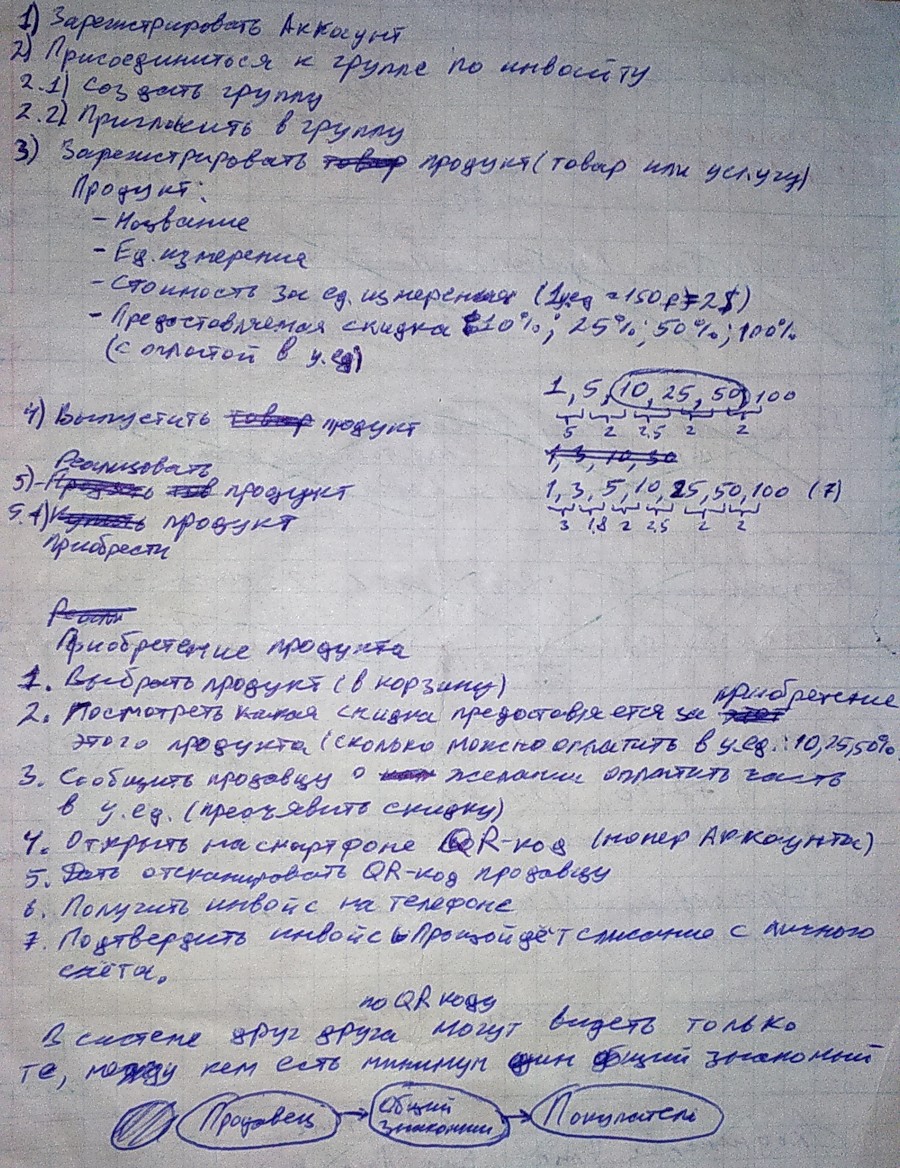 1) Зарегистрировать Аккаунт
2) Присоединиться к группе по инвайту
2.1) Создать группу
2.2) Пригласить в группу
3) Зарегистрировать товар продукт (товар или услугу)
Продукт:
- Название
- Ед. измерения
- Стоимость за ед. измерения (1у.ед = 150р = 2$)
- Предоставляемая скидка 10%; 25%; 50%; 100%
(с оплатой в у.ед)
1, 5, 10, 25, 50, 100
5 2 2,5 2 2
4) Выпустить товар продукт
1, 3, 10, 30
Реализовать
5) Продать тов продукт
1, 3, 5, 10, 25, 50, 100 (7)
3 1,8 2 2,5 2 2
5.1) Купить продукт
приобрести
Приобретение продукта
1. Выбрать продукт (в корзину)
приобретение
2. Посмотреть какая скидка предоставляется за этот
этого продукта (сколько можно оплатить в у.ед.: 10, 25, 50%
3. Сообщить продавцу о желании оплатить часть
в у.ед. (предъявить скидку)
4. Открыть на смартфоне QR-код (номер Аккаунта)
5. Дать отсканировать QR-код продавцу
6. Получить инвойс на телефоне
7. Подтвердить инвойс Произойдёт списание с личного
счёта.
по QR коду
В системе друг друга могут видеть только
те, между кем есть минимум один общий знакомый
Продавец → Общий знакомый → Покупатель